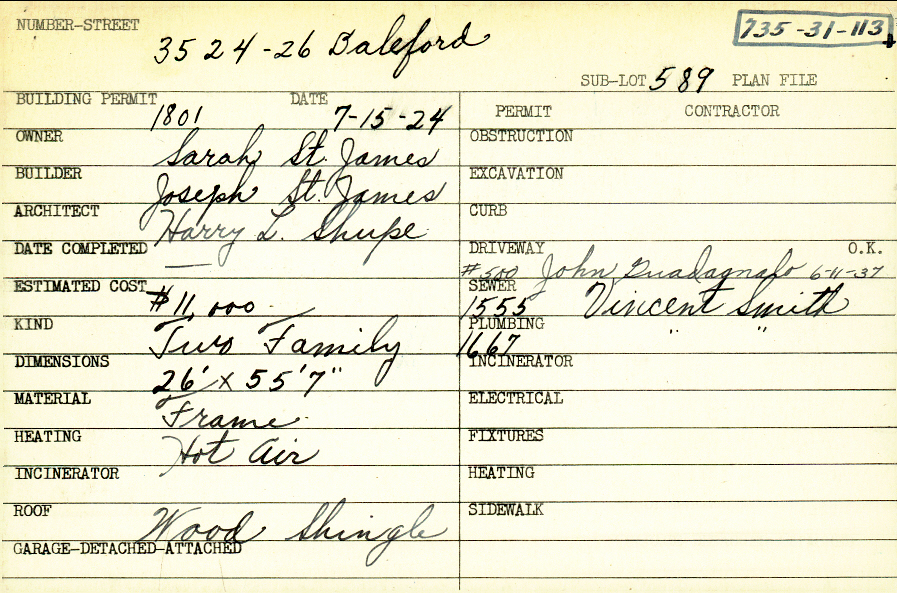 NUMBER-STREET
3524-26 Daleford
735-31-113
SUB-LOT 589 PLAN FILE
BUILDING PERMIT 1801 DATE 7-15-24
PERMIT CONTRACTOR
OWNER Sarah St. James
OBSTRUCTION
BUILDER Joseph St. James
EXCAVATION
ARCHITECT Harry L. Shupe
CURB
DATE COMPLETED —
DRIVEWAY O.K.
#500 John Guadagnalo 6-11-37
ESTIMATED COST $11,000
SEWER
1555 Vincent Smith
KIND Two Family
PLUMBING
1667 " "
DIMENSIONS 26' x 55'7"
INCINERATOR
MATERIAL Frame
ELECTRICAL
HEATING Hot Air
FIXTURES
INCINERATOR
HEATING
ROOF Wood Shingle
SIDEWALK
GARAGE-DETACHED-ATTACHED